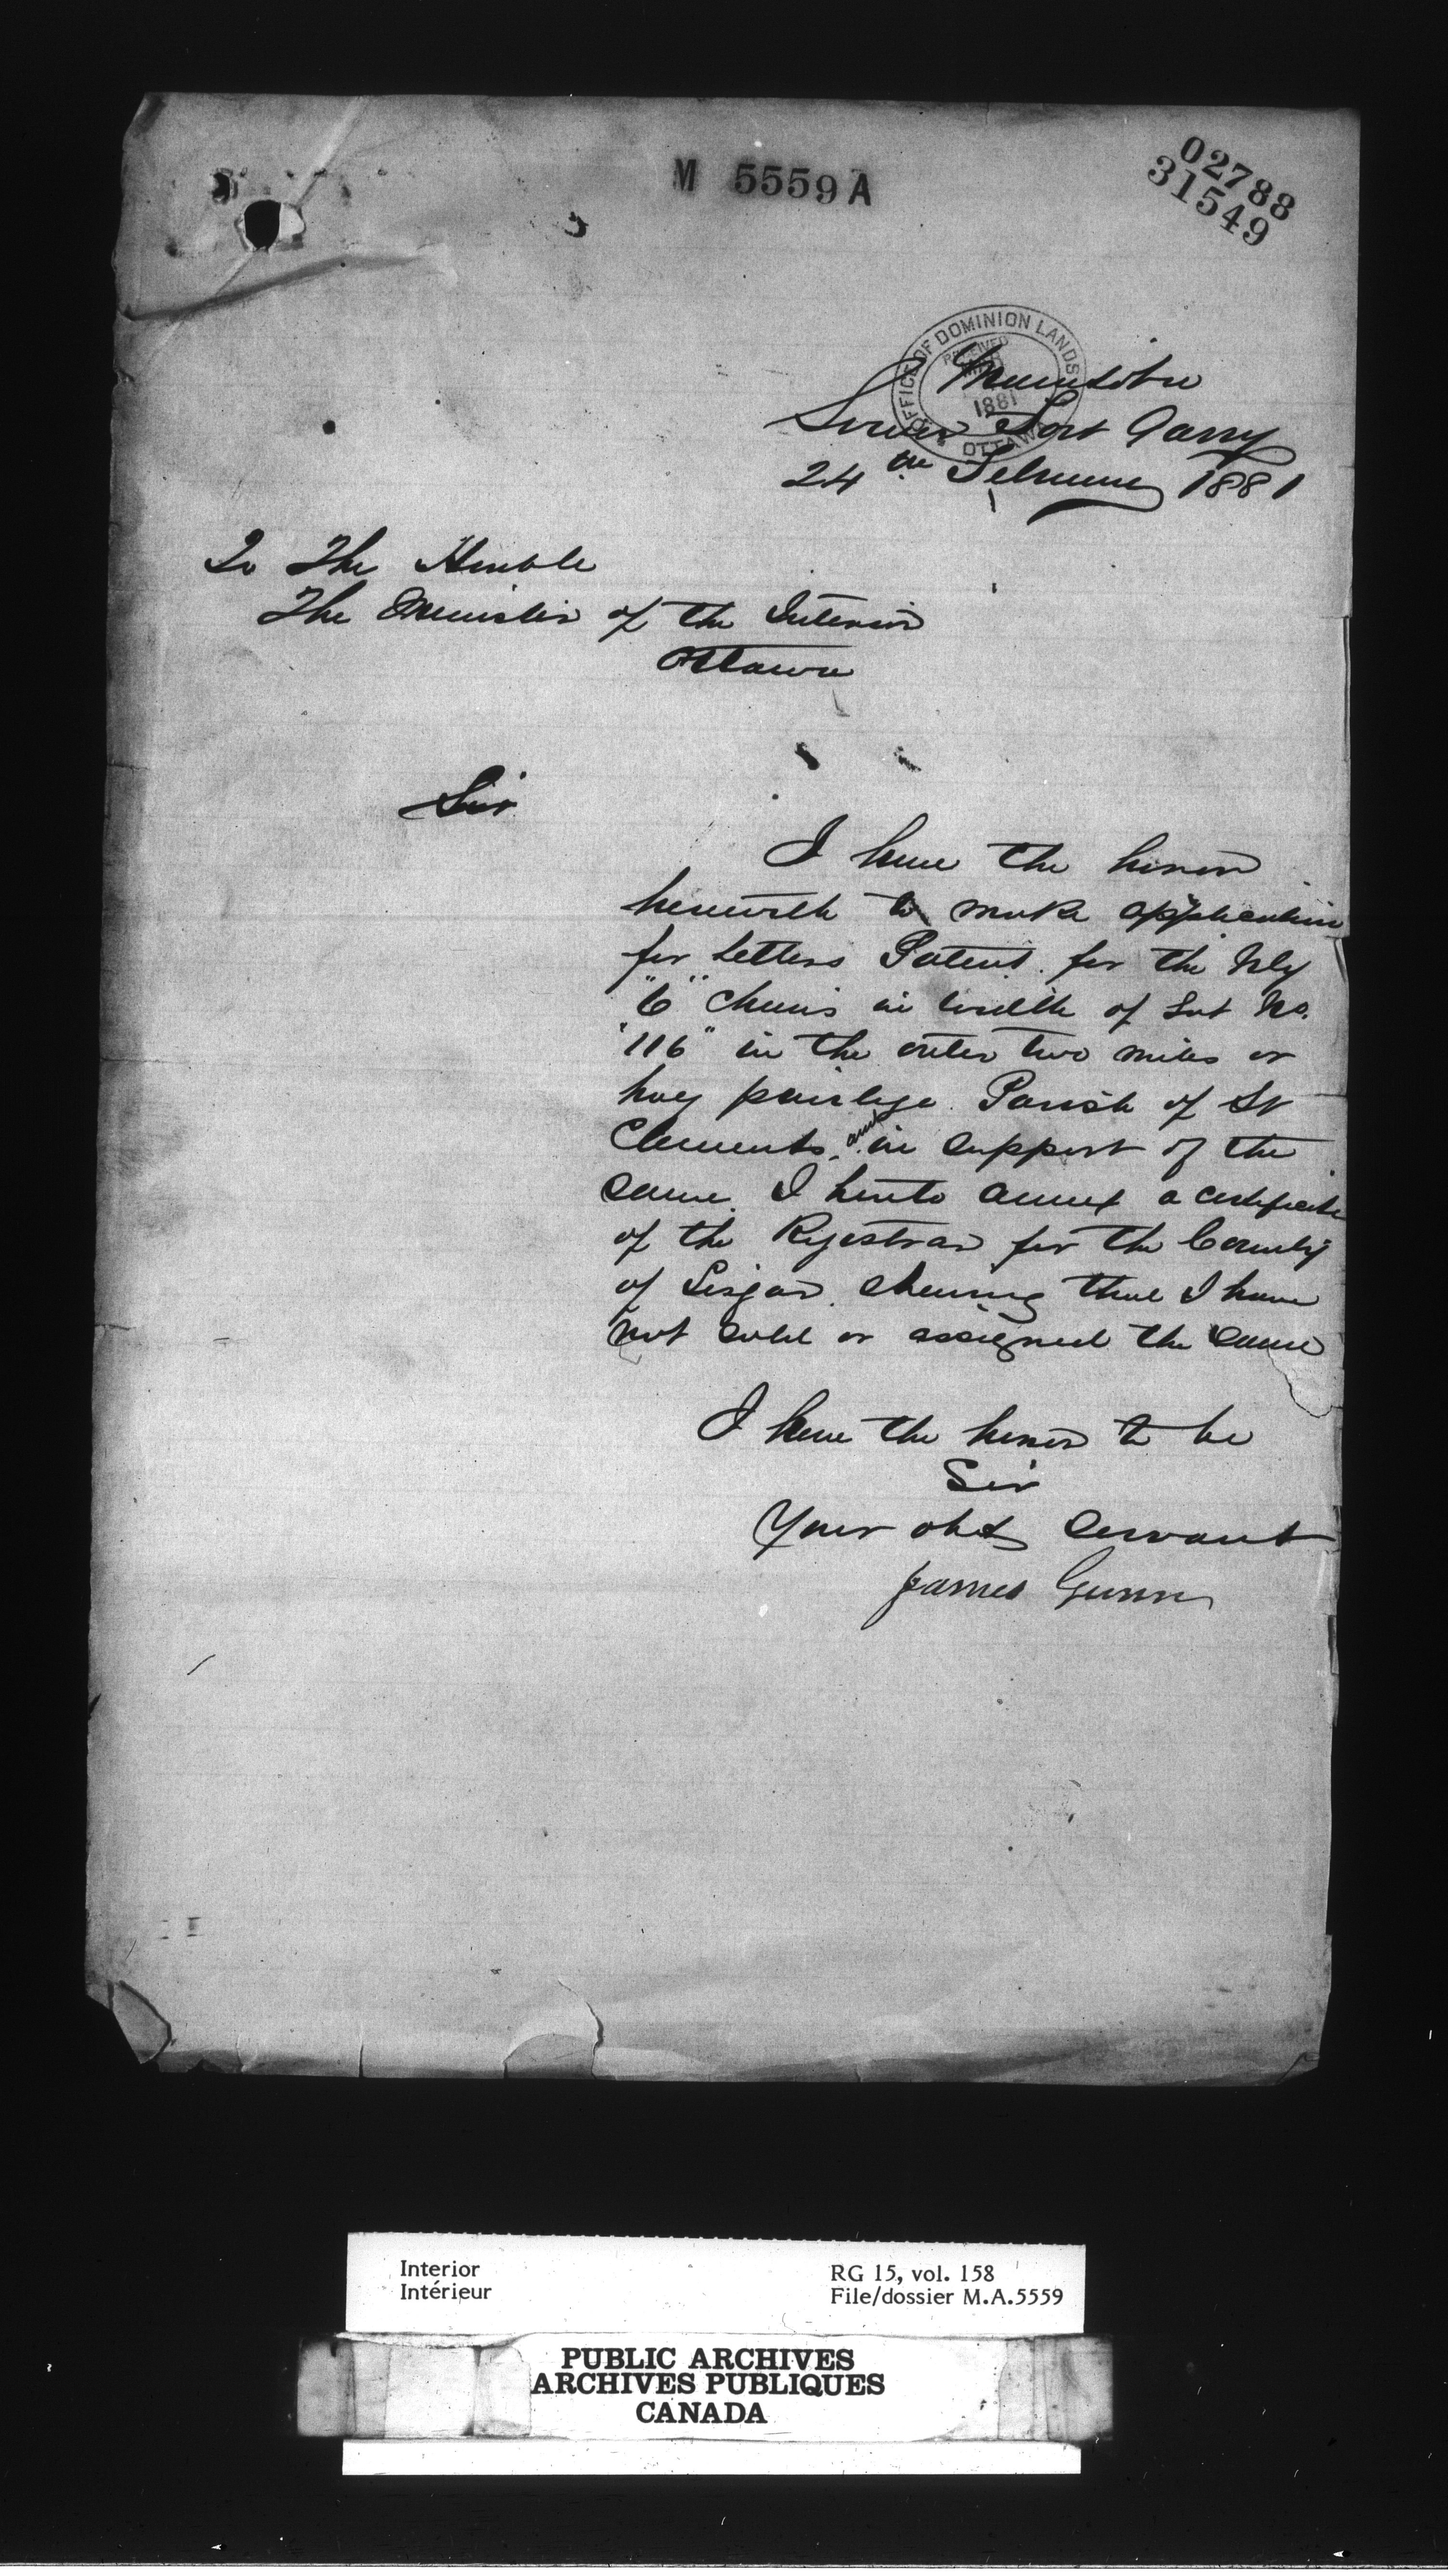 M 5559 A
02788
31549
OFFICE OF DOMINION LANDS
RECEIVED
1881
OTTAWA
Manitoba
Lower Fort Garry
24th February 1881
To The Honble
The Minister of the Interior
Ottawa
Sir
I have the honor
herewith to make application
for Letters Patent for the Nly
"6" chains in width of Lot No.
"116" in the outer two miles or
hay privilege Parish of St
Clements, and in support of the
same I hereto annex a certificate
of the Registrar for the County
of Lisgar shewing that I have
not sold or assigned the same
I have the honor to be
Sir
Your obdt Servant
James Gunn
Interior
Intérieur
RG 15, vol. 158
File/dossier M.A.5559
PUBLIC ARCHIVES
ARCHIVES PUBLIQUES
CANADA